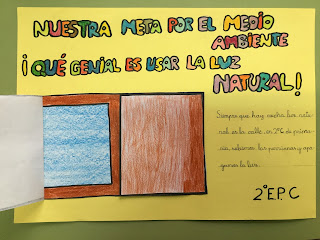 NUESTRA META POR EL MEDIO
AMBIENTE
¡QUÉ GENIAL ES USAR LA LUZ
NATURAL!
Siempre que hay mucha luz natu-
ral en la calle, en 2ºC de prima-
ria, subimos las persianas y apa-
gamos la luz.
2ºE.P. C